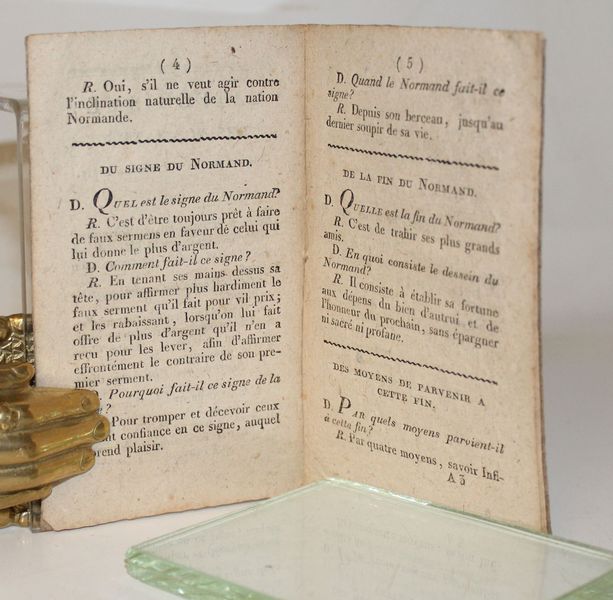 ( 4 )
R. Oui, s'il ne veut agir contre
l'inclination naturelle de la nation
Normande.
DU SIGNE DU NORMAND.
D. QUEL est le signe du Normand?
R. C'est d'être toujours prêt à faire
de faux sermens en faveur de celui qui
lui donne le plus d'argent.
D. Comment fait-il ce signe?
R. En tenant ses mains dessus sa
tête, pour affirmer plus hardiment le
faux serment qu'il fait pour vil prix;
et les rabaissant, lorsqu'on lui fait
offre de plus d'argent qu'il n'en a
recu pour les lever, afin d'affirmer
effrontément le contraire de son pre-
mier serment.
Pourquoi fait-il ce signe de la
?
Pour tromper et décevoir ceux
nt confiance en ce signe, auquel
prend plaisir.
( 5 )
D. Quand le Normand fait-il ce
signe?
R. Depuis son berceau, jusqu'au
dernier soupir de sa vie.
DE LA FIN DU NORMAND.
D. QUELLE est la fin du Normand?
R. C'est de trahir ses plus grands
amis.
D. En quoi consiste le dessein du
Normand?
R. Il consiste à établir sa fortune
aux dépens du bien d'autrui et de
l'honneur du prochain, sans épargner
ni sacré ni profane.
DES MOYENS DE PARVENIR A
CETTE FIN.
D. PAR quels moyens parvient-il
à cette fin?
R. Par quatre moyens, savoir Infi-
A 3